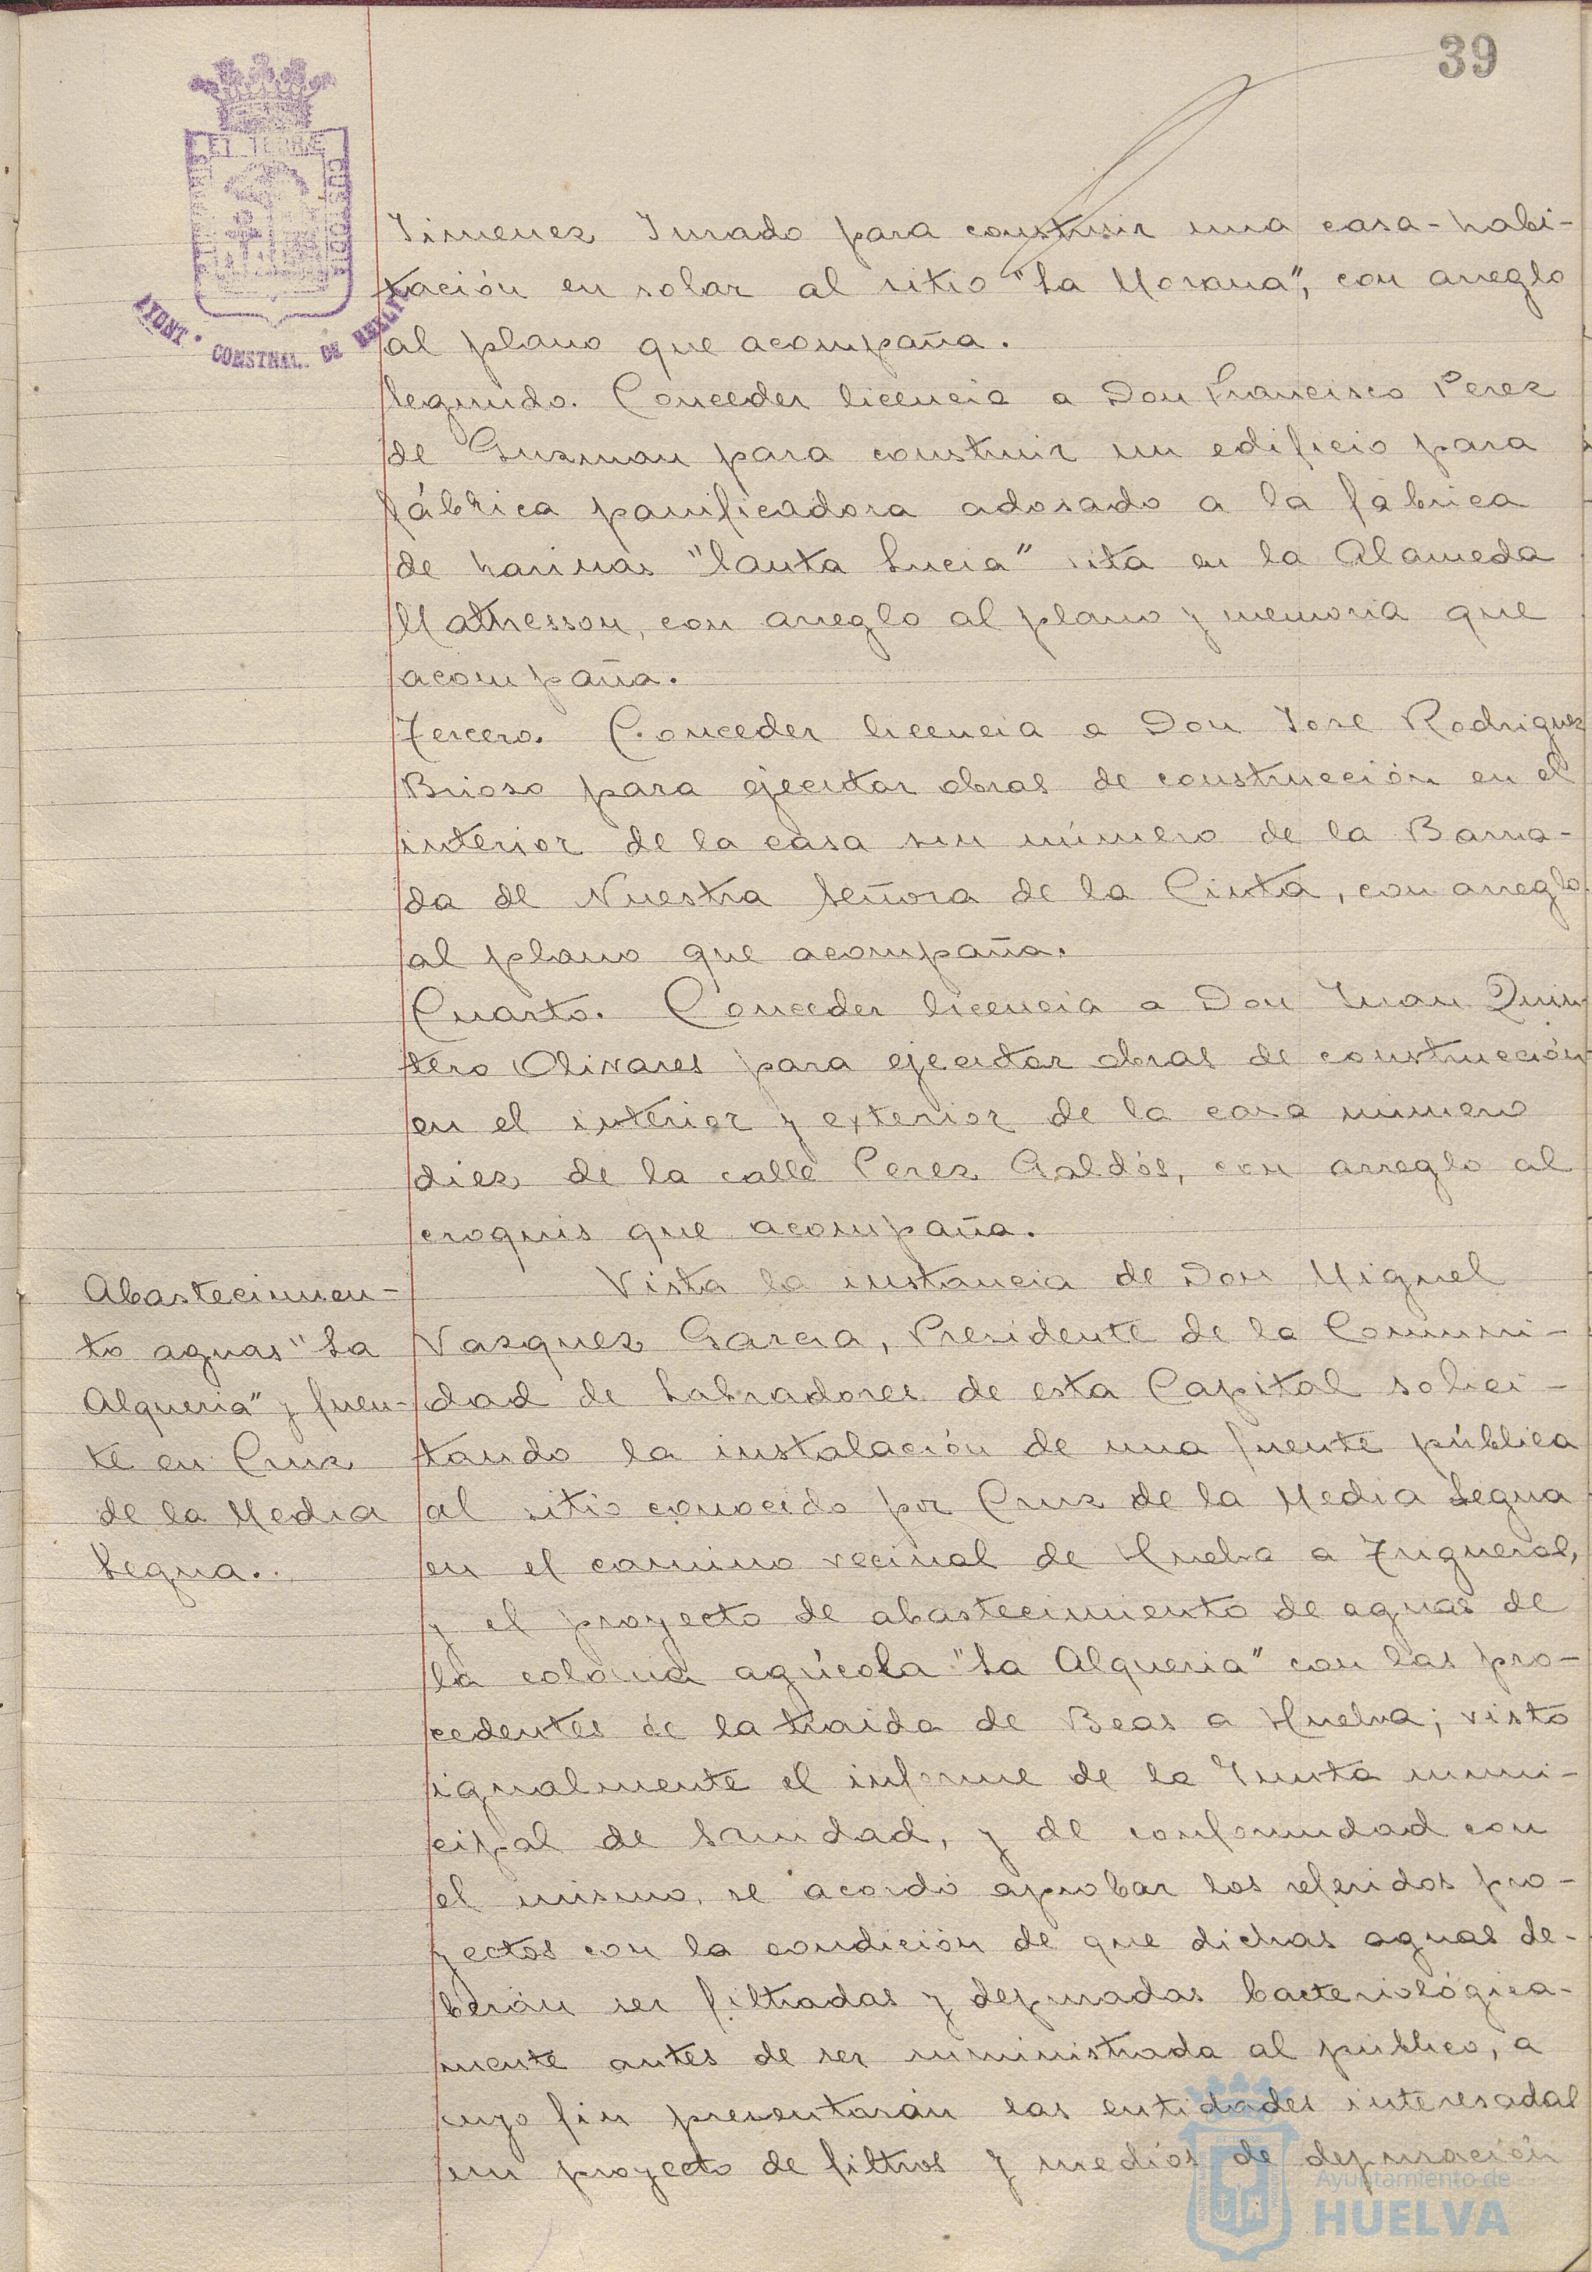 39
ET TERRÆ
CUSTODIA
AYONT · CONSTNAL. DE HUELVA
Jimenez Jurado para construir una casa-habi-
tación en solar al sitio "La Morana", con arreglo
al plano que acompaña.
Segundo. Conceder licencia a Don Francisco Perez
de Guzman para construir un edificio para
fábrica panificadora adosado a la fábrica
de harinas "Santa Lucia" sita en la Alameda
Mathesson, con arreglo al plano y memoria que
acompaña.
Tercero. Conceder licencia a Don Jose Rodriguez
Brioso para ejecutar obras de construcción en el
interior de la casa sin número de la Barria-
da de Nuestra Señora de la Cinta, con arreglo
al plano que acompaña.
Cuarto. Conceder licencia a Don Juan Quin
tero Olivares para ejecutar obras de construcción
en el interior y exterior de la casa número
diez de la calle Perez Galdós, con arreglo al
croquis que acompaña.
Abastecimien-
to aguas "La
Alqueria" y fuen-
te en Cruz
de la Media
Legua.
Vista la instancia de Don Miguel
Vazquez Garcia, Presidente de la Comuni-
dad de Labradores de esta Capital solici-
tando la instalación de una fuente pública
al sitio conocido por Cruz de la Media Legua
en el camino vecinal de Huelva a Trigueros,
y el proyecto de abastecimiento de aguas de
la colonia agrícola "La Alqueria" con las pro-
cedentes de la traida de Beas a Huelva; visto
igualmente el informe de la Junta muni-
cipal de Sanidad, y de conformidad con
el mismo, se acordó aprobar los referidos pro-
yectos con la condición de que dichas aguas de-
berán ser filtradas y depuradas bacteriológica-
mente antes de ser suministrada al público, a
cuyo fin presentarán las entidades interesadas
un proyecto de filtros y medios de depuración
Ayuntamiento de
HUELVA